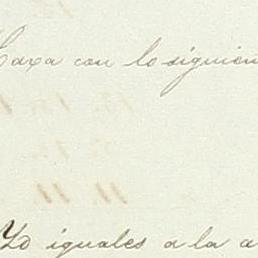 Caxa con lo siguien
Yd iguales a la a